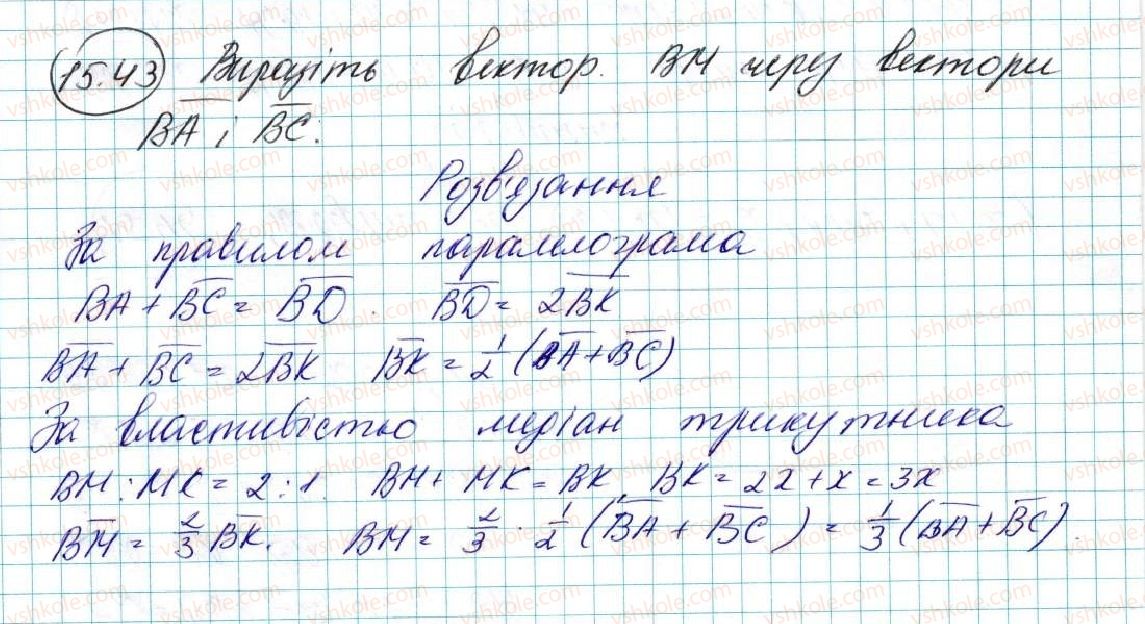 15.43 Виразіть вектор. BM через вектори
B͞A і B͞C.
Розв'язання
За правилом паралелограма
BA + B͞C = B͞D. B͞D = 2B͞K
B͞A + B͞C = 2B͞K B͞K = 1/2 (B͞A + B͞C)
За властивістю медіан трикутника
BM : MK = 2 : 1. BM + MK = BK, BK = 2x + x = 3x
B͞M = 2/3 B͞K. BM = 2/3 · 1/2 (B͞A + B͞C) = 1/3 (B͞A + B͞C).